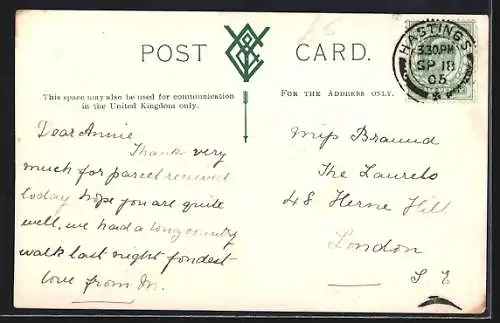 POST CARD.
This space may also be used for communication
in the United Kingdom only.
FOR THE ADDRESS ONLY.
HASTINGS
3.30.PM
SP 18
05
Dear Annie
Thanks very
much for parcel received
today hope you are quite
well, we had a long country
walk last night fondest
love from M.
Miss Braund
The Laurels
48 Herne Hill
London
S E